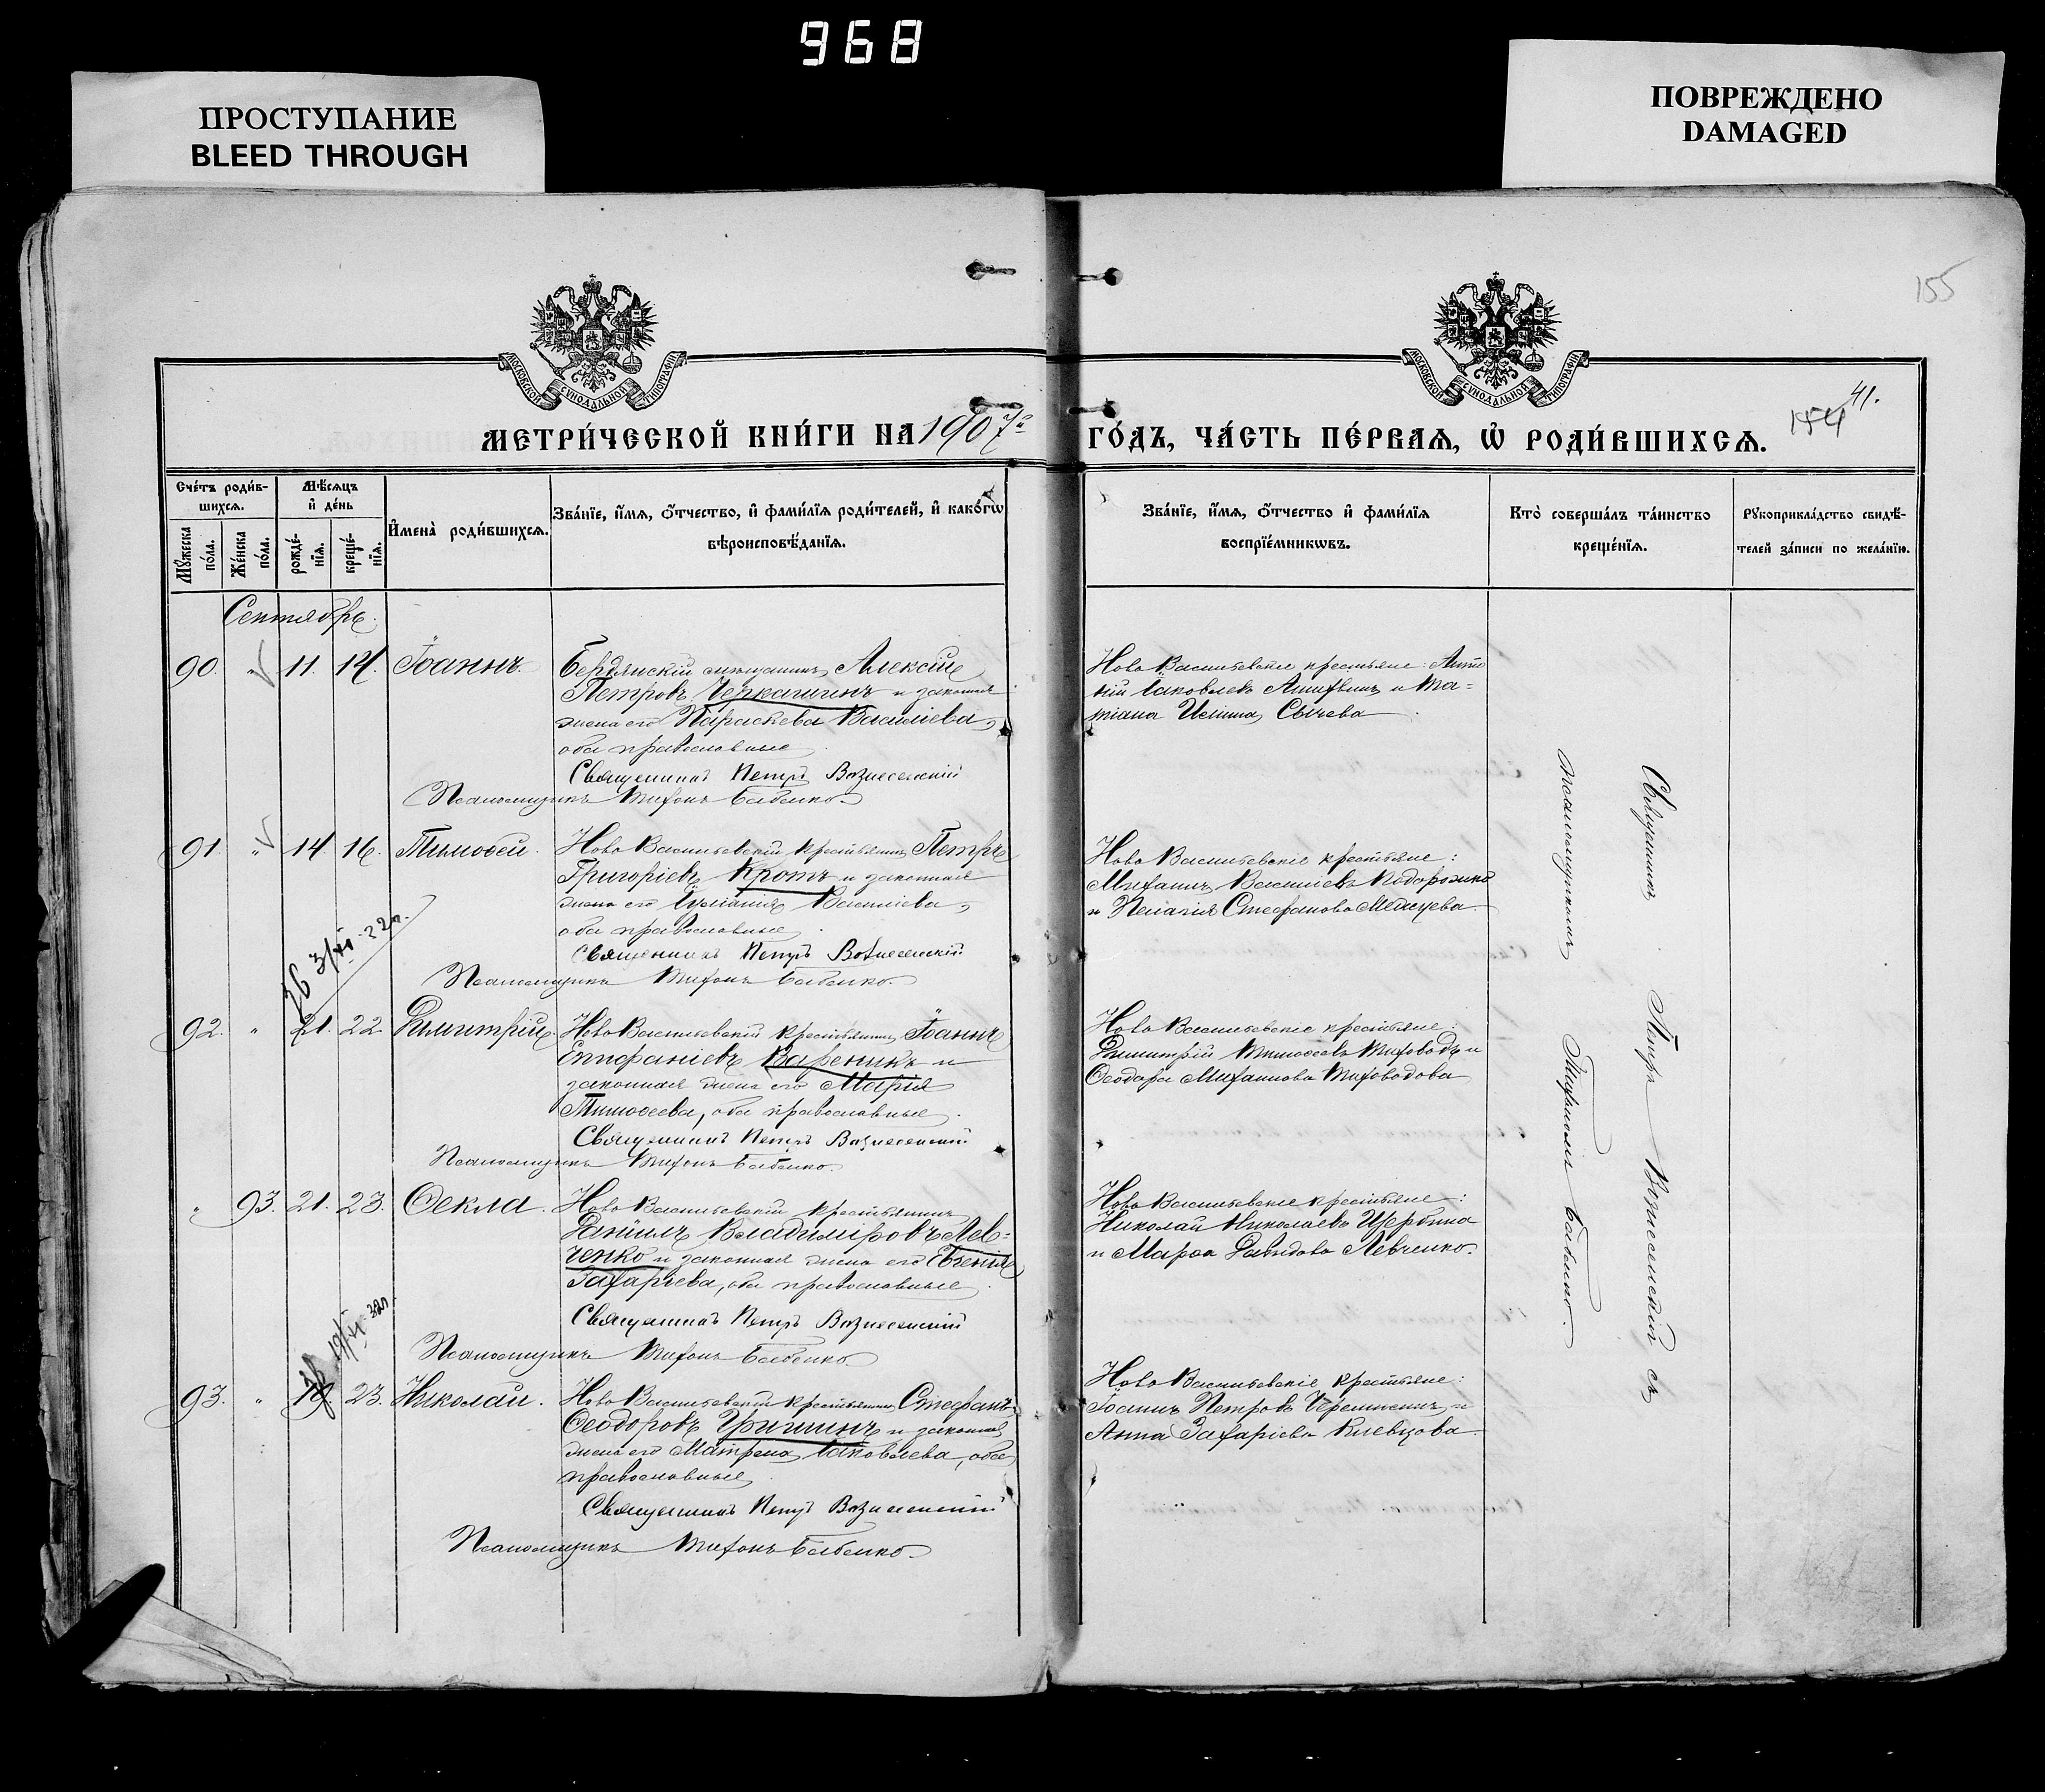 968
ПРОСТУПАНИЕ
BLEED THROUGH
ПОВРЕЖДЕНО
DAMAGED
155
МОСКОВСКОЙ СѴНОДАЛЬНОЙ ТИПОГРАФІИ
МОСКОВСКОЙ СѴНОДАЛЬНОЙ ТИПОГРАФІИ
41.
154
МЕТРИ́ЧЕСКОЙ КНИ́ГИ НА 1907 ГО́ДЪ, ЧА́СТЬ ПЕ́РВАЯ, Ѡ҆ РОДИ́ВШИХСЯ.
Сче́тъ роди́в-
шихся.
Мѣ́сяцъ
и҆ де́нь
Мꙋ́жеска
по́ла.
Же́нска
по́ла.
рожде́-
нїя.
креще́-
нїя.
И҆мена̀ роди́вшихся.
Зва́нїе, и҆́мя, ѻ҆́тчество, и҆ фами́лїя роди́телей, и҆ како́гѡ
вѣроисповѣ́данїя.
Зва́нїе, и҆́мя, ѻ҆́тчество и҆ фами́лїя
воспрїе́мникѡвъ.
Кто̀ соверша́лъ та́инство
креще́нїя.
Рꙋкоприкла́дство свидѣ́-
телей за́писи по жела́нїю.
Сентябрь.
90. " 11. 14. Іоаннъ.
Бердянскій мѣщанинъ Алексій
Петровъ и законная
жена его Параскева Василіева,
оба православные.
Священникъ Петръ Вознесенскій
Псаломщикъ Тихонъ Бабенко.
Ново Васильевскіе крестьяне: Анто
ній Іаковлевъ и Та-
тіана Сычева
91. " 14. 16. Тимоѳей.
Ново Васильевскій крестьянинъ Петръ
Григоріевъ Кротъ и законная
жена его Іуліанія Василіева,
оба православные.
Священникъ Петръ Вознесенскій
Псаломщикъ Тихонъ Бабенко.
Ново Васильевскіе крестьяне:
Михаилъ Василіевъ Подорожко
и Пелагія Стефанова
92. " 21. 22. Димитрій.
Ново Васильевскій крестьянинъ Іоаннъ
Епифаніевъ Вареникъ и
законная жена его Марія
Тимоѳеева, оба православные.
Священникъ Петръ Вознесенскій
Псаломщикъ Тихонъ Бабенко.
Ново Васильевскіе крестьяне:
Димитрій Тимоѳеевъ Тиховодъ и
Ѳеодора Михаилова Тиховодова
" 93. 21. 23. Ѳекла.
Ново Васильевскій крестьянинъ
Даніилъ Владиміровъ Лев-
ченко и законная жена его Евгенія
Захаріева, оба православные.
Священникъ Петръ Вознесенскій
Псаломщикъ Тихонъ Бабенко.
Ново Васильевскіе крестьяне:
Николай Николаевъ Щербина
и Марѳа Давидова Левченко.
93. " 19. 23. Николай.
Ново Васильевскій крестьянинъ Стефанъ
Ѳеодоровъ Гришинъ и законная
жена его Матрона Іаковлева, оба
православные.
Священникъ Петръ Вознесенскій
Псаломщикъ Тихонъ Бабенко.
Ново Васильевскіе крестьяне:
Іоаннъ Петровъ и
Анна Захаріева Клевцова.
Священникъ Петръ Вознесенскій съ
псаломщикомъ Бабенко.